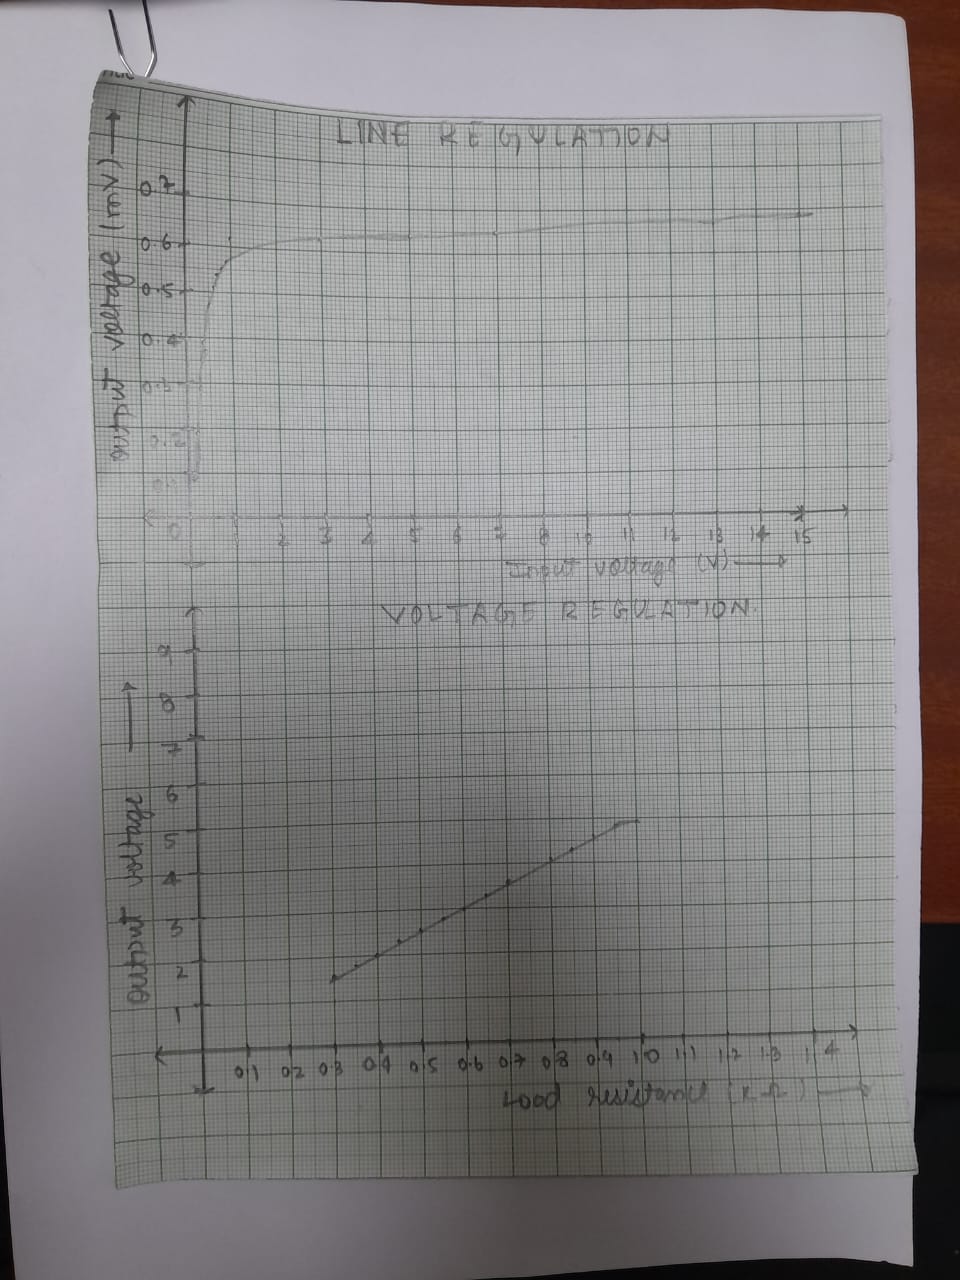 LINE REGULATION
output voltage (mV)
0.7
0.6
0.5
0.4
0.3
0.2
0.1
0
2 3 4 5 6 7 8 9 10 11 12 13 14 15
Input voltage (V)
VOLTAGE REGULATION.
output voltage
9
8
7
6
5
4
3
2
1
0.1 0.2 0.3 0.4 0.5 0.6 0.7 0.8 0.9 1.0 1.1 1.2 1.3 1.4
Load resistance (K Ω)